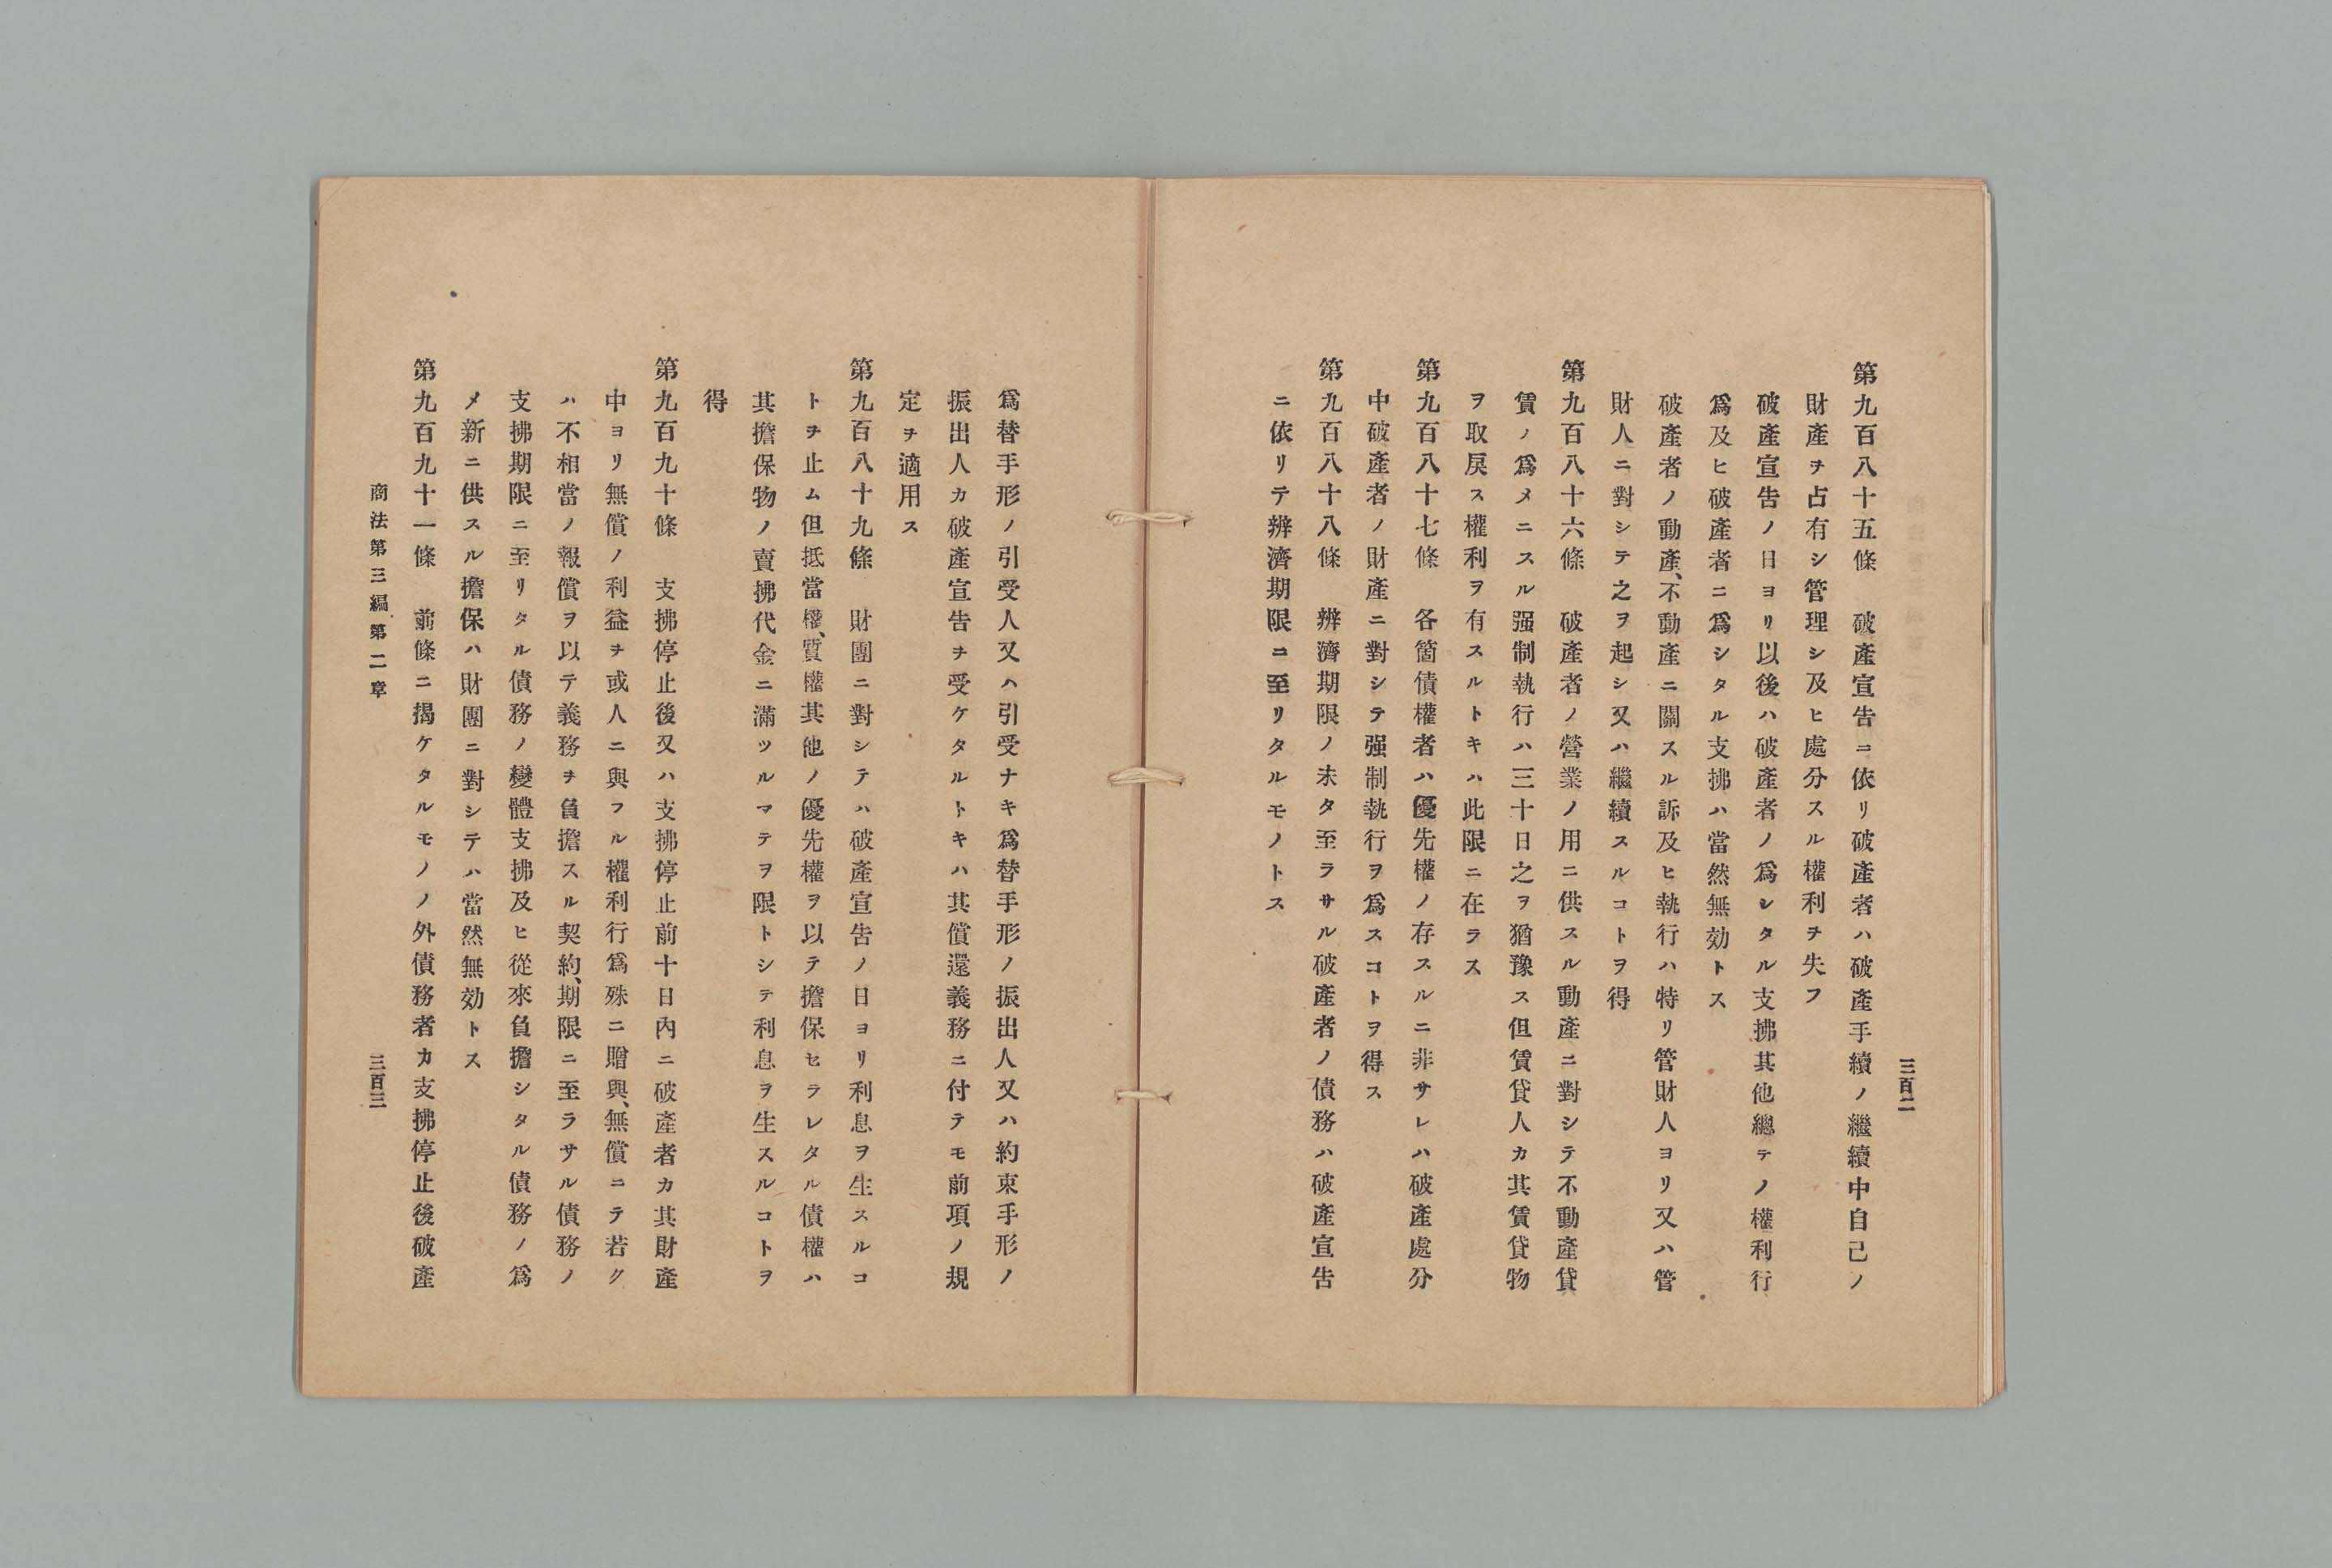 三百二
第九百八十五條　破產宣告ニ依リ破產者ハ破產手續ノ繼續中自己ノ
財產ヲ占有シ管理シ及ヒ處分スル權利ヲ失フ
破產宣告ノ日ヨリ以後ハ破產者ノ爲シタル支拂其他總テノ權利行
爲及ヒ破產者ニ爲シタル支拂ハ當然無効トス
破產者ノ動產、不動產ニ關スル訴及ヒ執行ハ特リ管財人ヨリ又ハ管
財人ニ對シテ之ヲ起シ又ハ繼續スルコトヲ得
第九百八十六條　破產者ノ營業ノ用ニ供スル動產ニ對シテ不動產貸
賃ノ爲メニスル强制執行ハ三十日之ヲ猶豫ス但賃貸人カ其賃貸物
ヲ取戾ス權利ヲ有スルトキハ此限ニ在ラス
第九百八十七條　各箇債權者ハ優先權ノ存スルニ非サレハ破產處分
中破產者ノ財產ニ對シテ强制執行ヲ爲スコトヲ得ス
第九百八十八條　辨濟期限ノ未タ至ラサル破產者ノ債務ハ破產宣告
ニ依リテ辨濟期限ニ至リタルモノトス
爲替手形ノ引受人又ハ引受ナキ爲替手形ノ振出人又ハ約束手形ノ
振出人カ破產宣告ヲ受ケタルトキハ其償還義務ニ付テモ前項ノ規
定ヲ適用ス
第九百八十九條　財團ニ對シテハ破產宣告ノ日ヨリ利息ヲ生スルコ
トヲ止ム但抵當權、質權其他ノ優先權ヲ以テ擔保セラレタル債權ハ
其擔保物ノ賣拂代金ニ滿ツルマテヲ限トシテ利息ヲ生スルコトヲ
得
第九百九十條　支拂停止後又ハ支拂停止前十日內ニ破產者カ其財產
中ヨリ無償ノ利益ヲ或人ニ與フル權利行爲殊ニ贈與、無償ニテ若ク
ハ不相當ノ報償ヲ以テ義務ヲ負擔スル契約、期限ニ至ラサル債務ノ
支拂期限ニ至リタル債務ノ變體支拂及ヒ從來負擔シタル債務ノ爲
メ新ニ供スル擔保ハ財團ニ對シテハ當然無効トス
第九百九十一條　前條ニ揭ケタルモノノ外債務者カ支拂停止後破產
商法第三編第二章
三百三